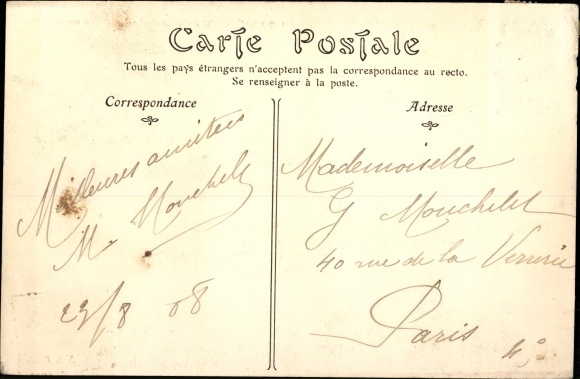 Carte Postale
Tous les pays étrangers n'acceptent pas la correspondance au recto.
Se renseigner à la poste.
Correspondance
Meilleures amitiés
M. Mouchelet
23/8 08
Adresse
Mademoiselle
G Mouchelet
40 rue de la Verrerie
Paris
4°